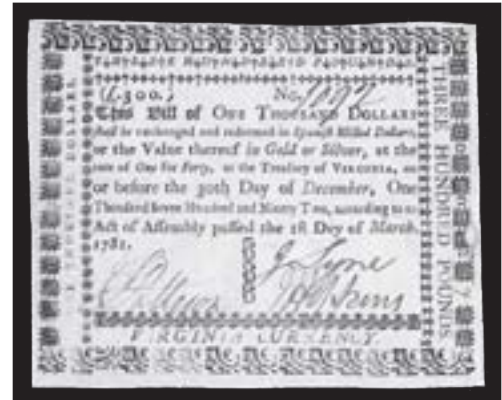 (£.300.) No. 7092
This Bill of ONE THOUSAND DOLLARS
shall be exchanged and redeemed in Spanish Milled Dollars,
or the Value thereof in Gold or Silver, at the
rate of One for Forty, at the Treasury of VIRGINIA, on
or before the 30th Day of December, One
Thousand Seven Hundred and Ninety Two, according to
Act of Assembly passed the 1st Day of March,
1781.
VIRGINIA CURRENCY.
THREE HUNDRED POUNDS
THOUSAND DOLLARS.